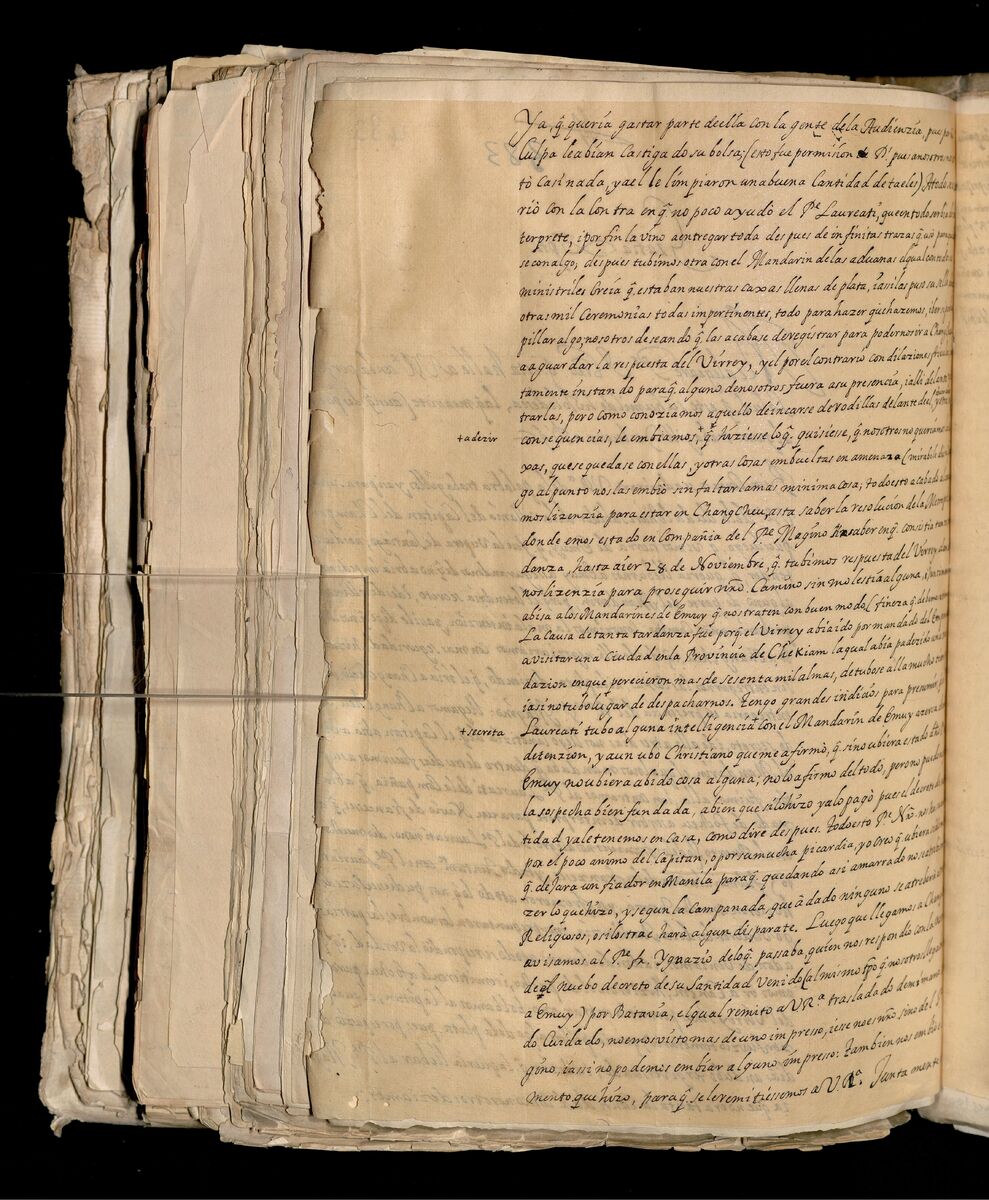 Ya, q̃ queria gastar parte de ella con la gente de la Audienzia, pues por
culpa le abian castigado su bolsa; (esto fue permision de D.s pues a nosotros no
tò casi nada, y a el le limpiaron una buena cantidad de taeles) Atodo
riò con la contra en q̃ no poco ayudò el P.e Laureati, que en todo
terprete, i por fin la vino a entregar toda despues de infinitas trazas q̃ usò para
se con algo; despues tubimos otra con el Mandarin de las aduanas el qual con todos
ministriles creia q̃ estaban nuestras caxas llenas de plata, i asi las puso su sello
otras mil ceremonias todas impertinentes, todo para hazer q̃ hazemos, i ber si
pillar algo; nosotros deseando q̃ las acabase de registrar para podernos ir a Chang
a aguardar la respuesta del Virrey, y el por el contrario con dilaciones
tamente instando paraq̃ alguno de nosotros fuera a su presencia, i alli delante
trarlas, pero como conoziamos aquello de incarse de rodillas delante de el, y otras
+ a dezir
consequencias, le embiamos,+ q̃ hiziesse lo q̃ quisiesse, q̃ nosotros no queriamos
xas, que se quedase con ellas, y otras cosas embueltas en amenaza (mirabile
go al punto nos las embiò sin faltar la mas minima cosa; todo esto acabado
mos lizenzia para estar en ChangCheu, asta saber la resolucion de la
donde emos estado en compañia del P.e Magino sin saber en q̃ consistia tan
danza, hasta aier 28 de Noviembre, q̃ tubimos respuesta del Virrey
nos lizenzia para proseguir nr̃o camino sin molestia alguna, i juntamente
abisa a los Mandarines de Emuy q̃ nos traten con buen modo (fineza q̃ debemos
La causa de tanta tardanza fue porq̃ el Virrey abia ido por mandado del Emp
a visitar una Ciudad en la Provincia de CheKiam la qual abia padezido una
dazion en que perecieron mas de sesenta mil almas, detubose alla mucho
i asi no tubo lugar de despacharnos. Tengo grandes indicios para presumir
+ secreta
Laureati tubo alguna intelligencia+ con el Mandarin de Emuy azerca
detenzion, y aun ubo Christiano que me afirmò, q̃ si no ubiera estado el
Emuy no ubiera abido cosa alguna; no lo afirmo del todo, pero no
la sospecha bien fundada, a bien que si lo hizo ya lo pagò pues el decreto
tidad ya le tenemos en casa, como dire despues. Todo esto P.e Nr̃o nos ha
por el poco animo del Capitan, o por su mucha picardia, yo creo q̃ ubiera
q̃ dejara un fiador en Manila paraq̃ quedando asi amarrado no se
zer lo que hizo, y segun la campanada, que â dado ninguno se atreberà
Religiosos, o si los trae harà algun disparate. Luego que llegamos a Chang
avisamos al P.e fr. Ygnazio de lo q̃ passaba, quien nos respondio con la
de el nuebo decreto de su Santidad venido (al mismo tp̃o q̃ nosotros
a Emuy) por Batavia, el qual remito a V.R.a trasladado de mi mano
do cuidado, no emos visto mas de uno impresso, i esse no es nr̃o sino del
gino, i assi no podemos embiar alguno impresso: tambien nos embiò el
mento que hizo, para q̃ se le remitiessemos a V.R.a. Juntamente